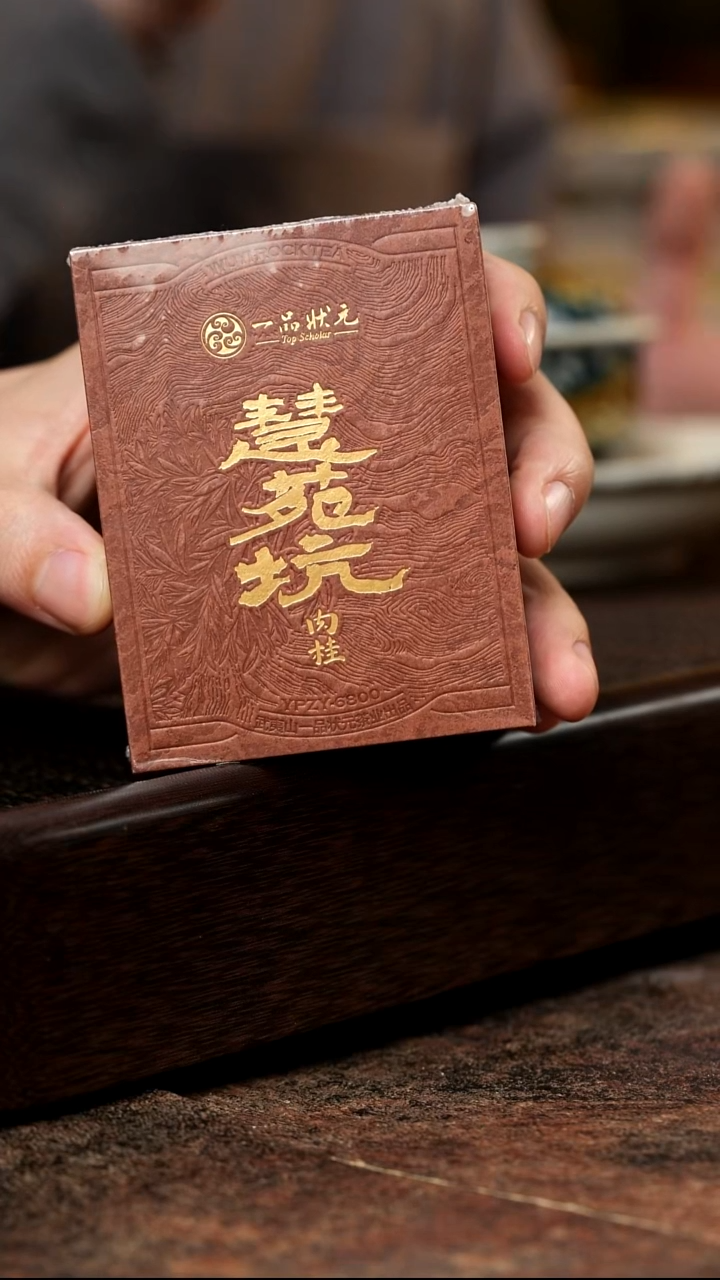 WUYI ROCK TEA
一品狀元
Top Scholar
慧苑坑
肉桂
YPZY·6800
武夷山一品状元茶业出品